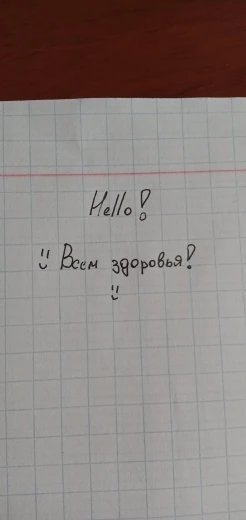 Hello!
Всем здоровья!